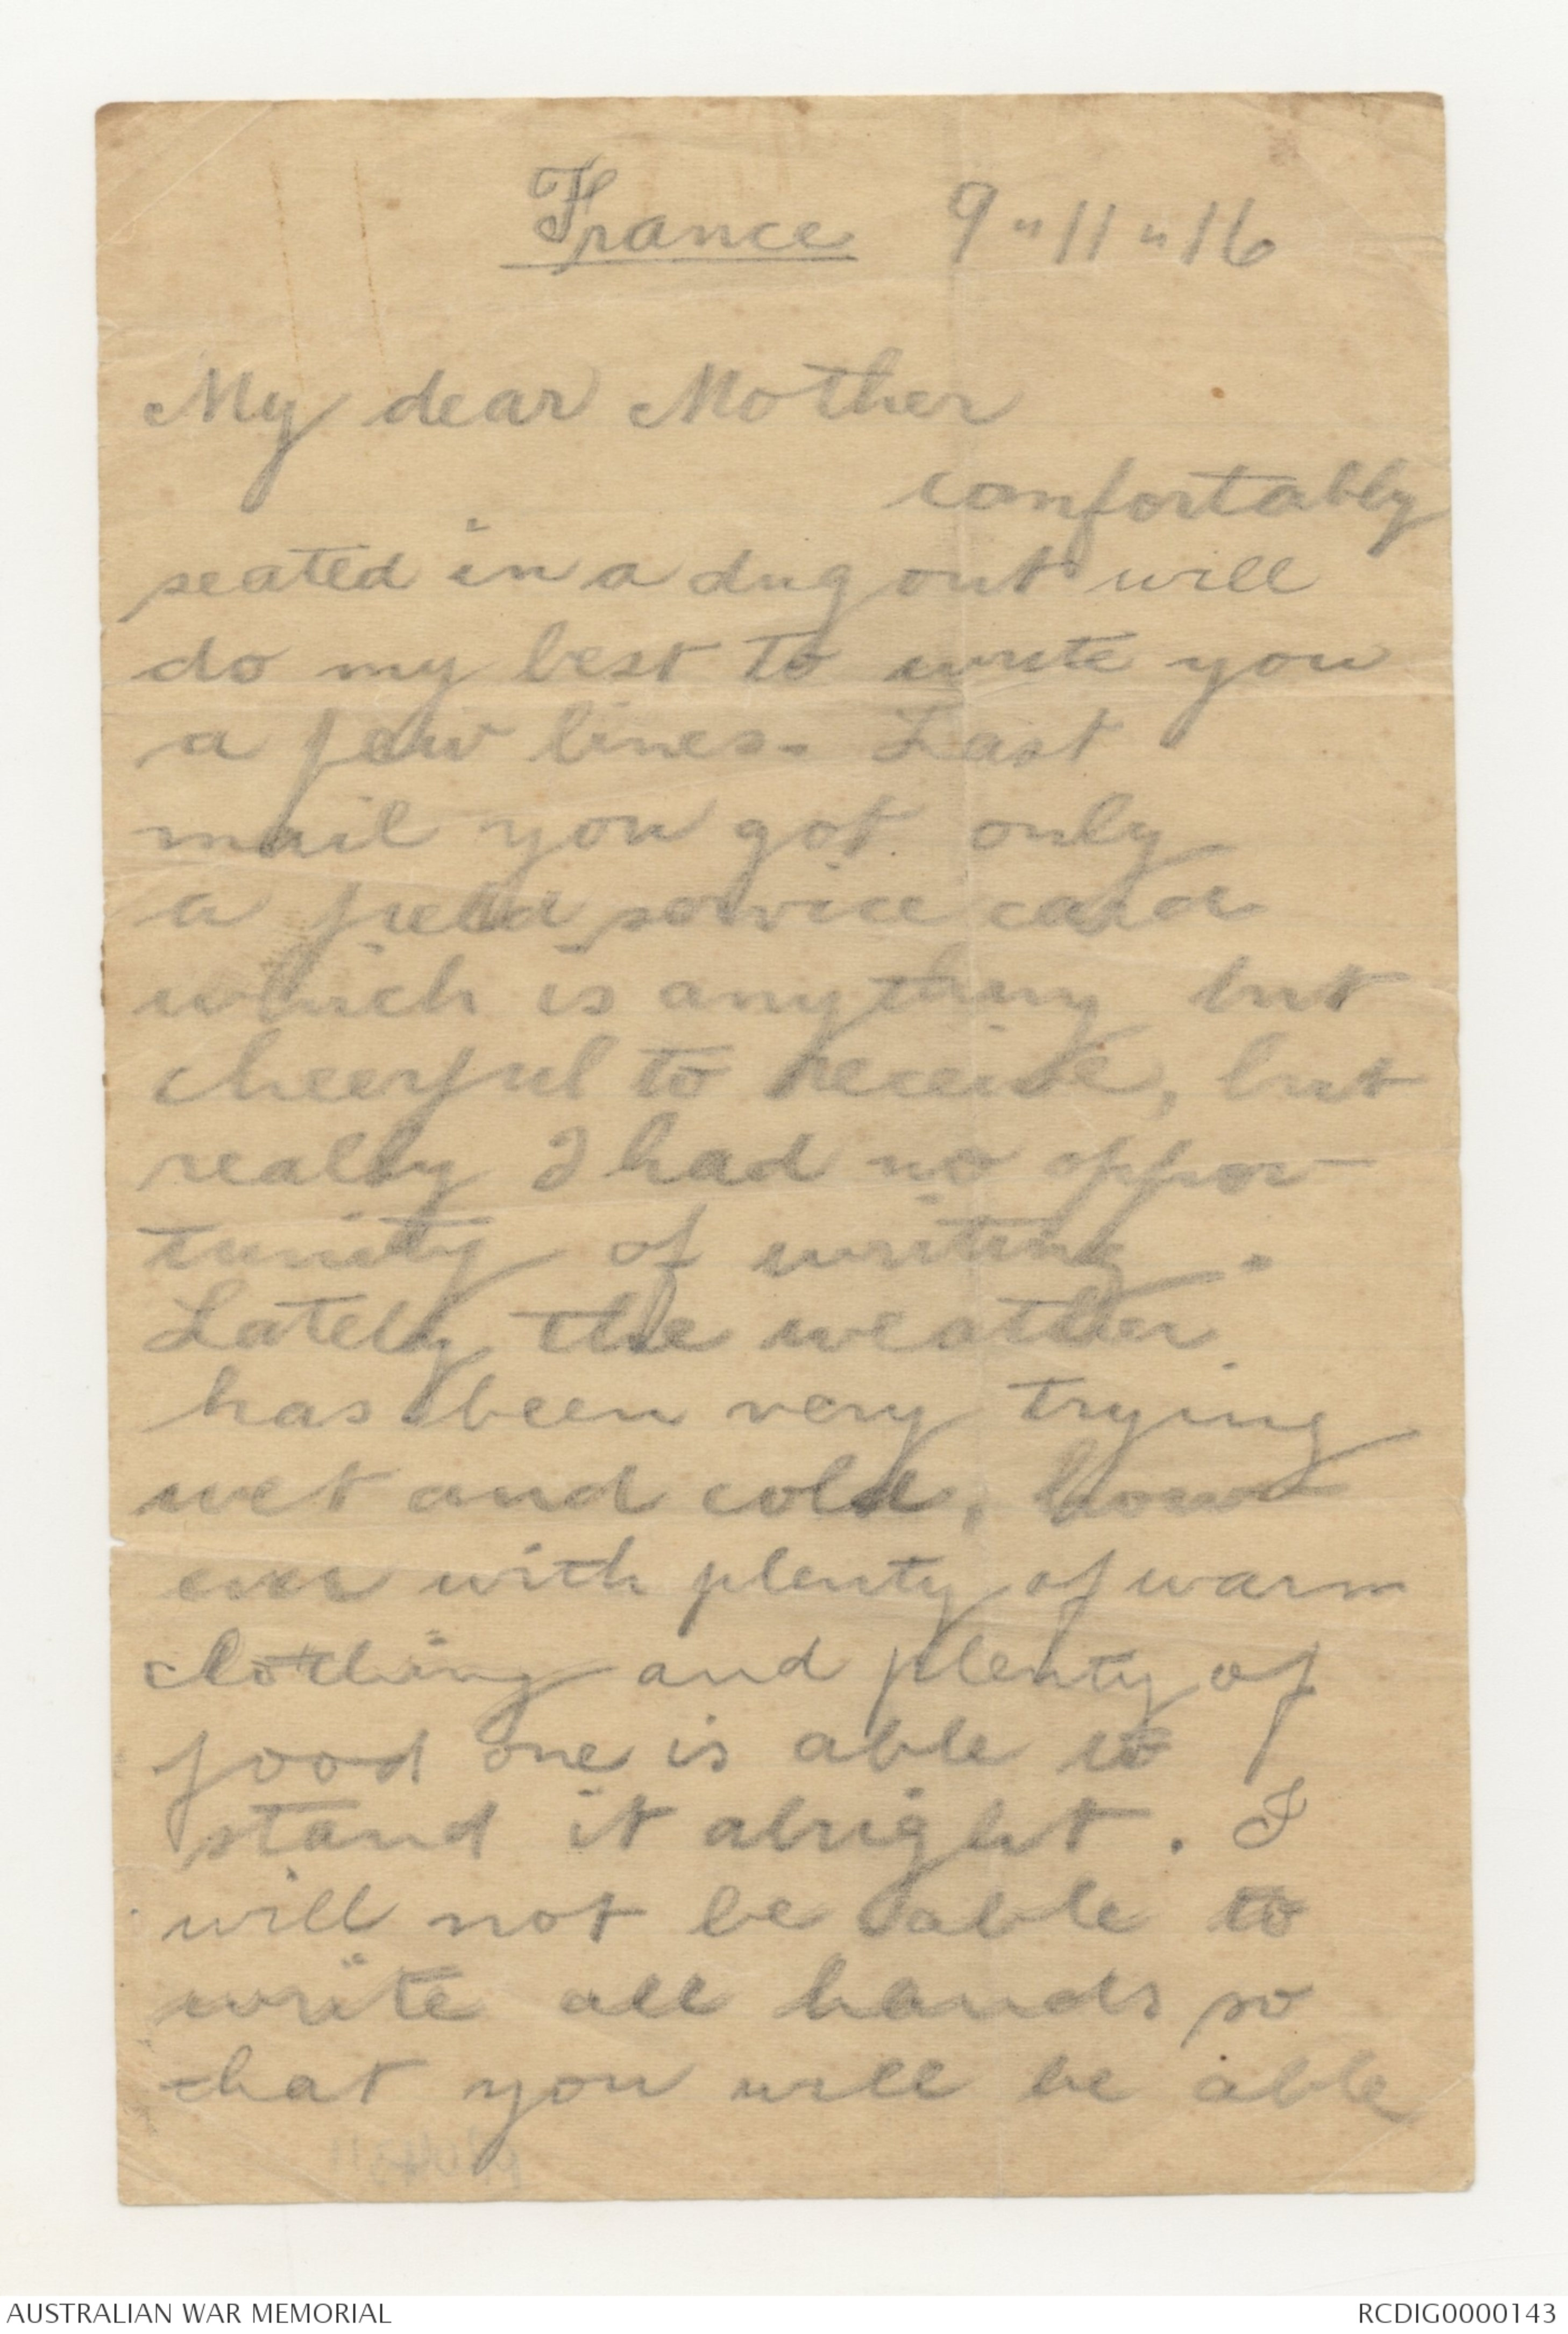 France 9"11"16
My dear Mother
comfortably
seated in a dug out will
do my best to write you
a few lines. Last
mail you got only
a field service card
which is anything but
cheerful to receive, but
really I had no oppor-
tunity of writing.
Lately the weather
has been very trying
wet and cold, how-
ever with plenty of warm
clothing and plenty of
food one is able to
stand it alright. I
will not be able to
write all hands so
that you will be able
AUSTRALIAN WAR MEMORIAL
RCDIG0000143